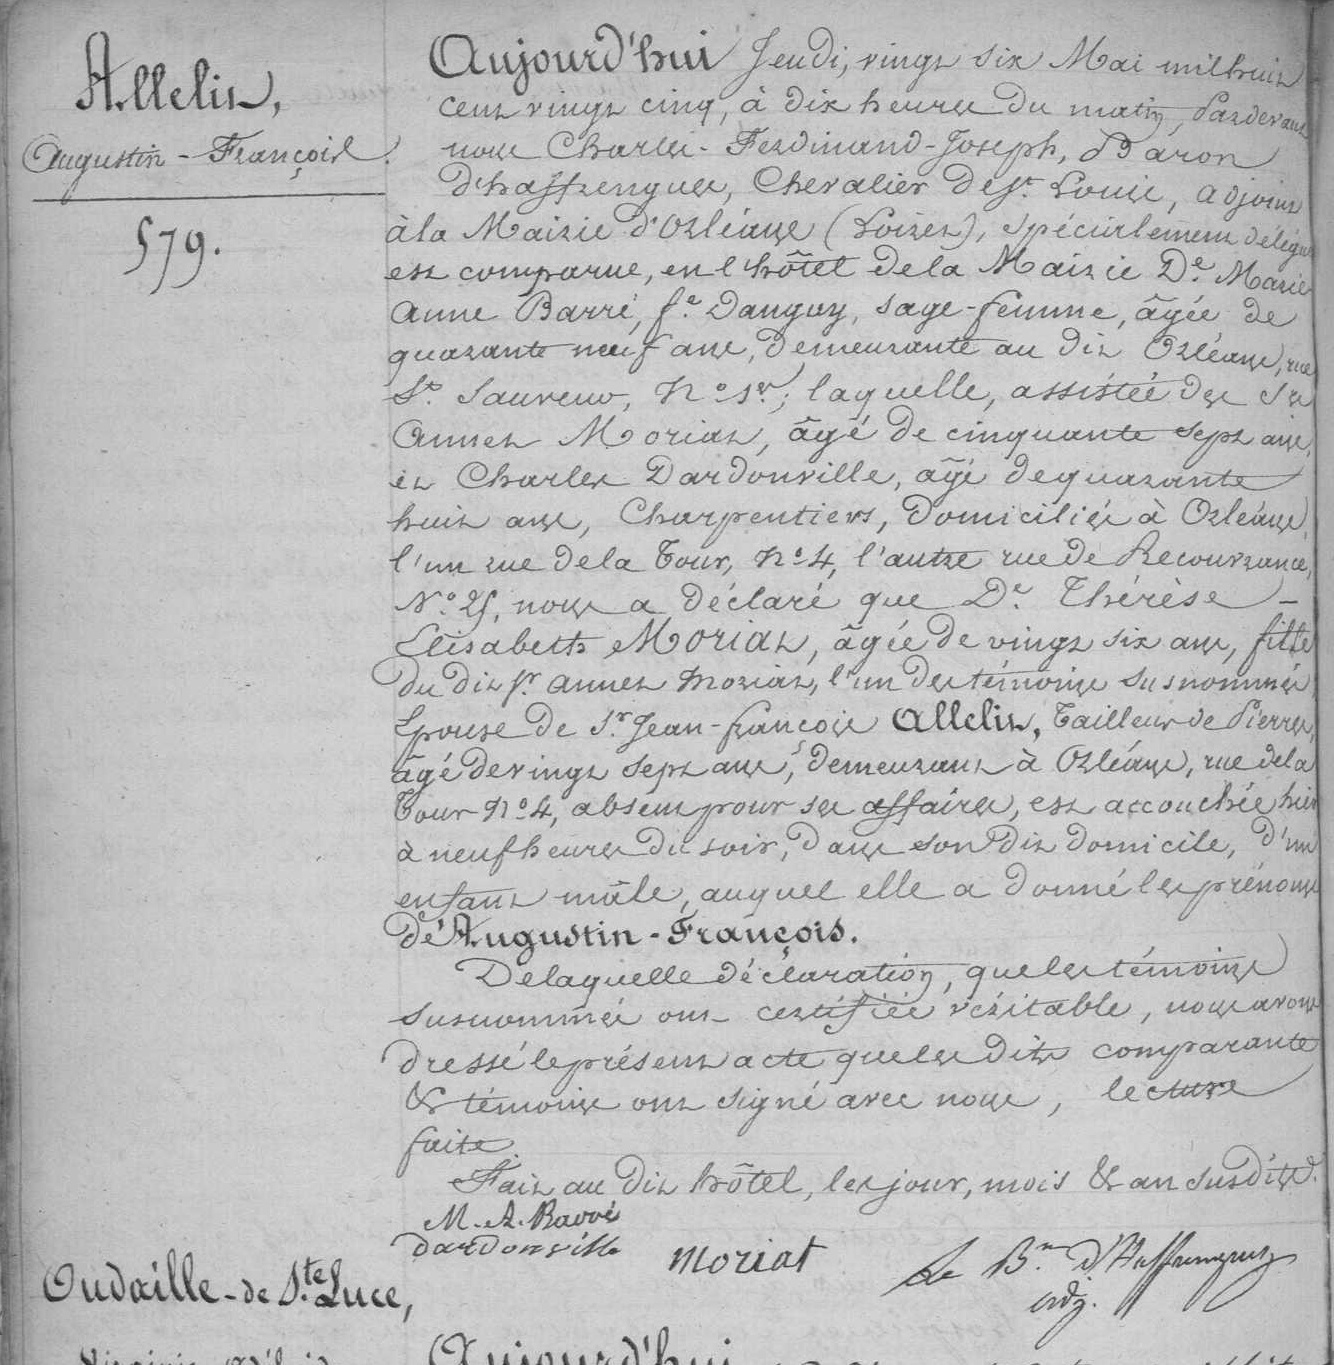 Allelit,
Augustin-François.
579.
Aujourd'hui Jeudi, vingt six Mai mil huit
cent vingt cinq, à dix heures du matin, Pardevant
nous Charles-Ferdinand-Joseph, Baron
d'haffrengues, Chevalier de St. Louis, adjoint
à la Mairie d'Orléans (Loiret), spécialement délégué
est comparue, en l'hôtel de la Mairie De. Marie
Anne Barré, fe. Danguy, sage-femme, âgée de
quarante neuf ans, demeurante au dit Orléans, rue
St. Sauveur, No. 1er.; laquelle, assistée des Srs
Annet Moriat, âgé de cinquante sept ans,
et Charles Dardonville, âgé de quarante
huit ans, Charpentiers, domiciliés à Orléans,
l'un rue de la Tour, No. 4, l'autre rue de Recouvrance,
No. 25, nous a déclaré que De. Thérèse-
Elisabeth Moriat, âgée de vingt six ans, fille
du dit Sr. Annet Moriat, l'un des témoins susnommés
Epouse de Sr. Jean-françois Allelit, Tailleur de Pierres,
âgé de vingt sept ans, demeurant à Orléans, rue de la
Tour No. 4, absent pour ses affaires, est accouchée hier
à neuf heures du soir, dans son dit domicile, d'un
enfant mâle, auquel elle a donné les prénoms
de Augustin-François.
De laquelle déclaration, que les témoins
susnommés ont certifiée véritable, nous avons
dressé le présent acte que les dits comparante
& témoins ont signé avec nous, lecture
faite.
Fait au dit hôtel, les jour, mois & an susdits.
M. A. Barré
dardonville
moriat
Le Bn. d'Haffrengues
adj.
Oudaille-de Ste. Luce,
Aujourd'hui